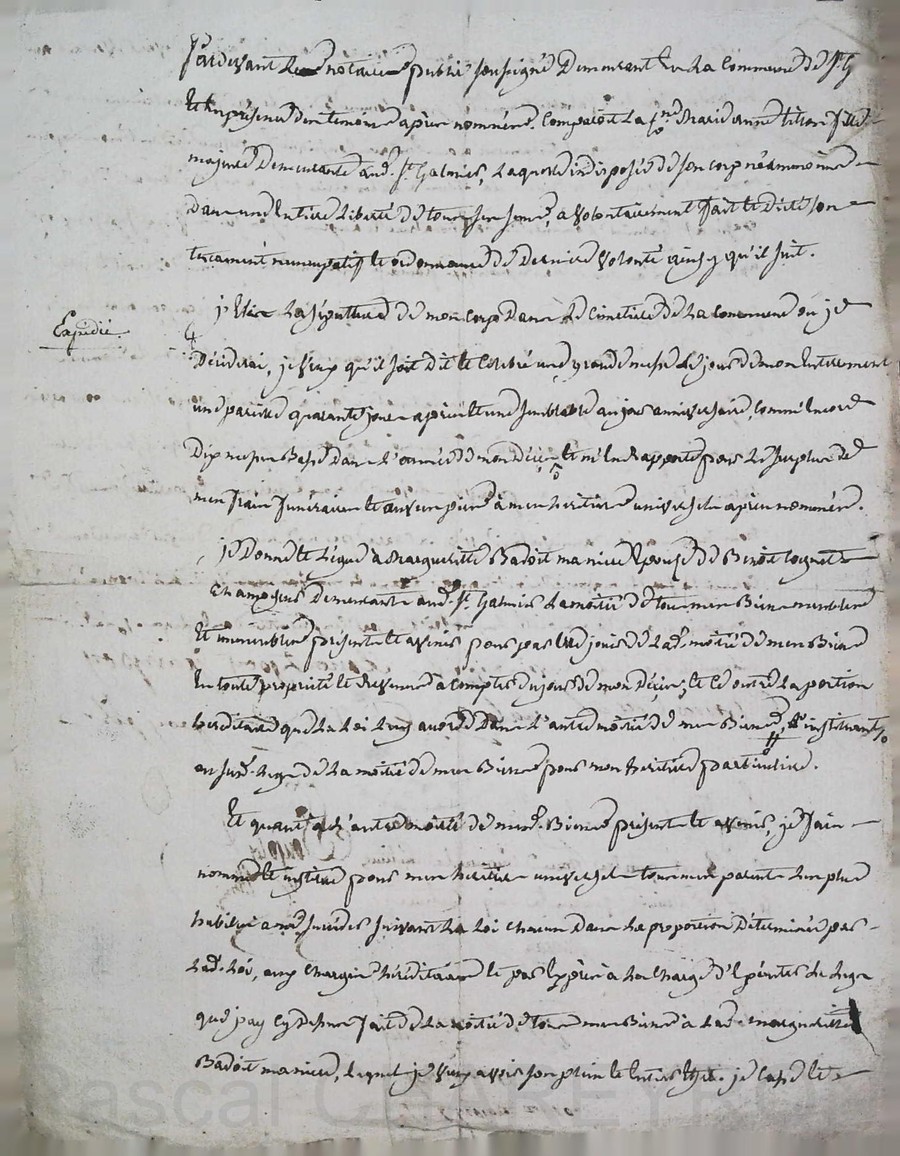 Pardevant le notaire public soussigné Demeurant en la Commune de St G
Et en présence des temoins apres nommés. Comparoit la Marie anne fille
majeure Demeurante aud. St Galmier, Laquelle indisposée de son corp néammoins
Dans une Entiere Liberté de tous ses sens, a volontairement fait et dicté son
testament nuncupatif et ordonnance de Derniere volonté ainsy qu'il suit.
Expedié
j'Elis La sépulture de mon corp Dans Le Cimetiere de La Commune ou je
Déciderai, je veux qu'il soit dit et Célébré une grande messe Le jour de mon Enterrement
une pareille quarante jours apres et une semblable au jour anniversaire, comme Encore
Dix messes Basse Dans L'année de mon Décès, et m'En Rapporte pour Le surplus de
mes frais funéraires et œuvres pies à mes heritiers universels apres nommés.
je Donne et Légue à Margueritte Badoit ma niece Epouse de Benoit
Demeurante aud. St Galmier La moitié de tous mes Biens meubles
Et immeubles présents et avenir pour par Elle jouir de Lad. moitié de mes Biens
En toute propriété et Revenus à Compter du jour de mon Décès, et ce outre La portion
hereditaire que La Loi Luy accorde Dans L'autre moitié de mes Biens, L'instituant
au surd. Legs de La moitié de mes Biens pour mon heritiere particuliere.
Et quant à L'autre moitié de mesd. Biens présents et avenir, je fais
nomme et institue pour mes heritiers universels tous mes parents Les plus
habiles a me succéder suivant La Loi chacun Dans La proportion Déterminée par
Lad. Loi, aux charges héréditaires et par Exprès à La Charge d'Exécuter Le Legs
que j'ay cy Dessus fait de La moitié de tous mes Biens à Lad. margueritte
Badoit ma niece, Lequel je veux avoir son plein et Entier Effet. je Casse et